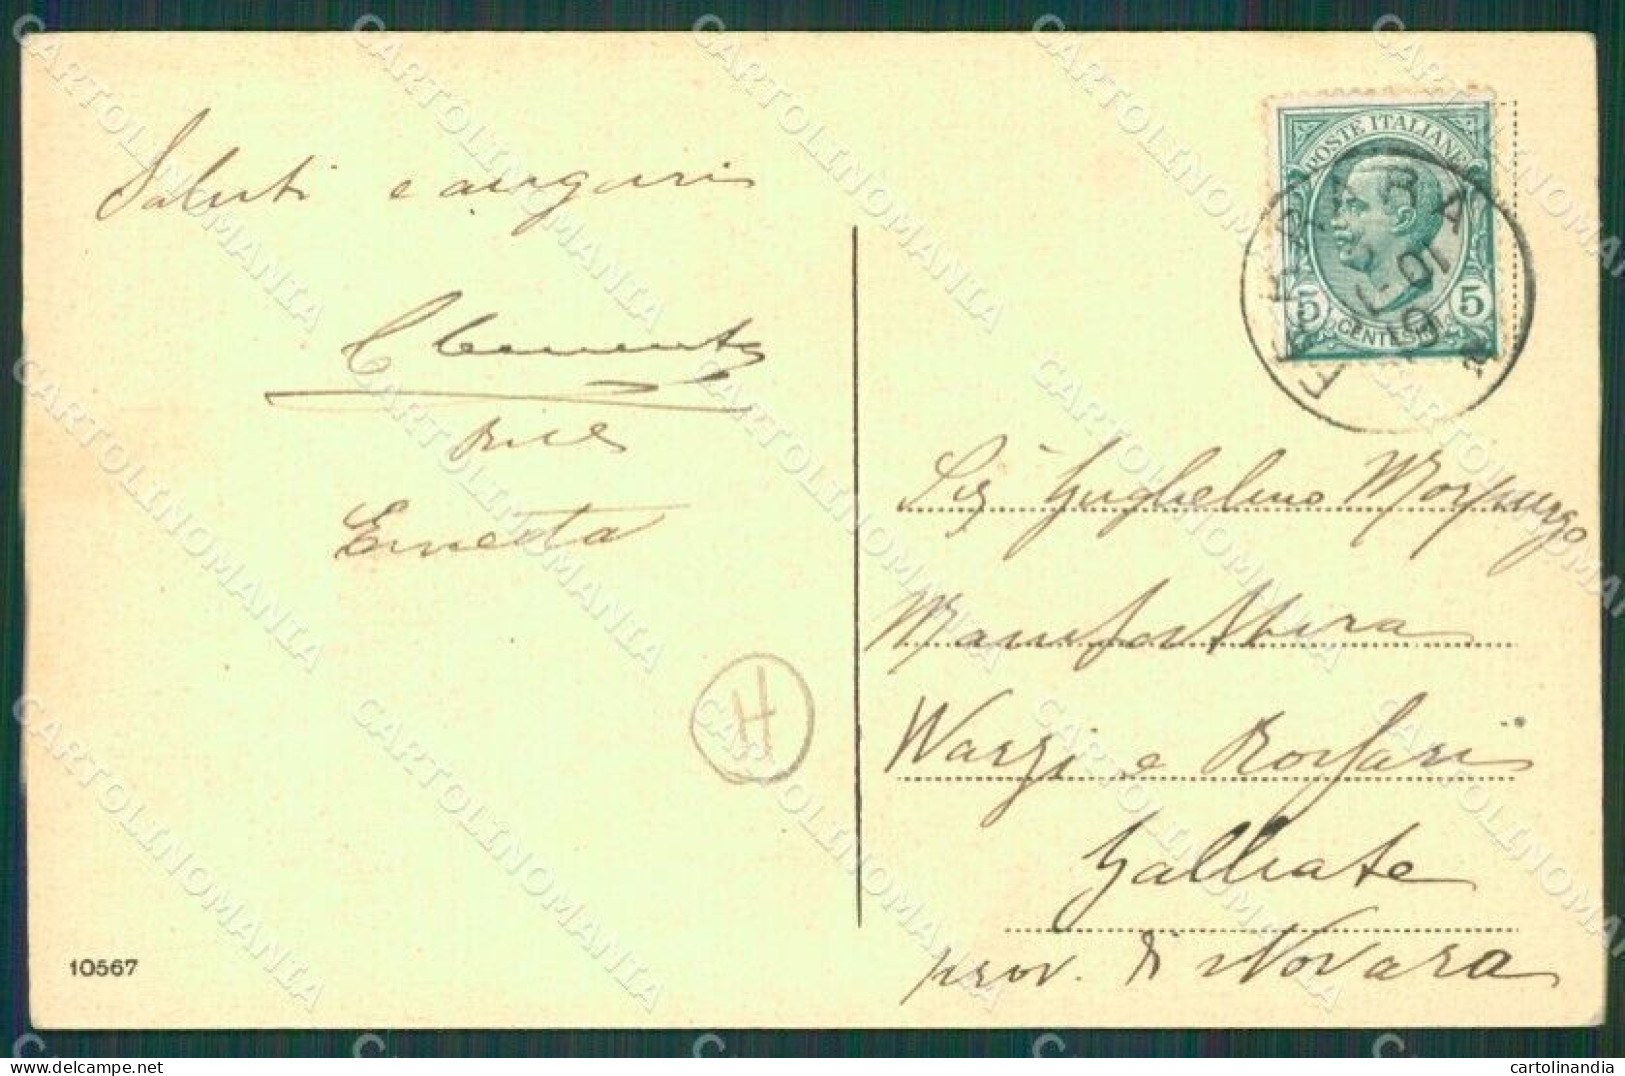 Saluti e auguri
Clemente
Ernesta
10567
H
POSTE ITALIANE
5 5
CENTESIMI
FERRARA
Sig Guglielmo Morpurgo
Manifattura
Warzi e Rossari
Galliate
prov. di Novara
CARTOLINOMANIA
cartolinandia